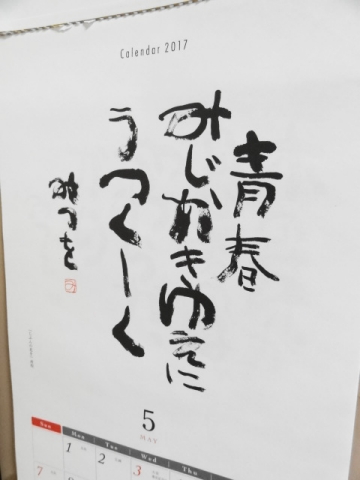 Calendar 2017
青春
みじかきゆえに
うつくしく
みつを
5
MAY
Sun Mon Tue Wed Thu
1 2 3
7